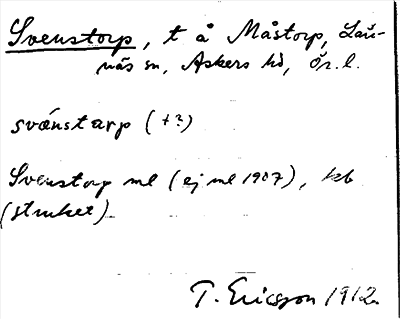 Svenstorp, t å Måstorp, Län-
näs sn, Askers hd, Ör. l.
svánstarp (+?)
Svenstorp ml (ej ml 1907), kb
(struket)
T. Ericsson 1912